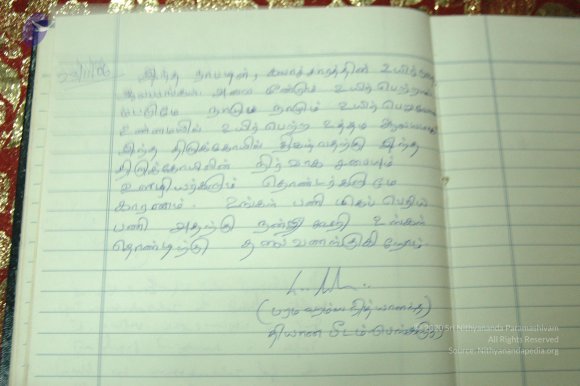 இந்த நாட்டின், கலாச்சாரத்தின் உயிர்
ஆலயங்கள். அவை மீண்டும் உயிர் பெற்றால்
நாடும் நாடும் உயிர் பெறும்
உண்மையில் உயிர் பெற்ற உத்தம ஆலயமாக
இந்த திருக்கோயில் திகழ்வதற்கு இந்த
திருக்கோயிலின் நிர்வாக சபையும்
ஊழியர்களும் தொண்டர்களுமே
காரணம். உங்கள் பணி மிகப் பெரிய
பணி அதற்கு நன்றி கூறி உங்கள்
தொண்டிற்கு தலை வணங்குகிறோம்
(பரமஹம்ஸ நித்யானந்த)
தியான பீடம் பெங்களூர்
©2020 Sri Nithyananda Paramashivam
All Rights Reserved
Source: Nithyanandapedia.org